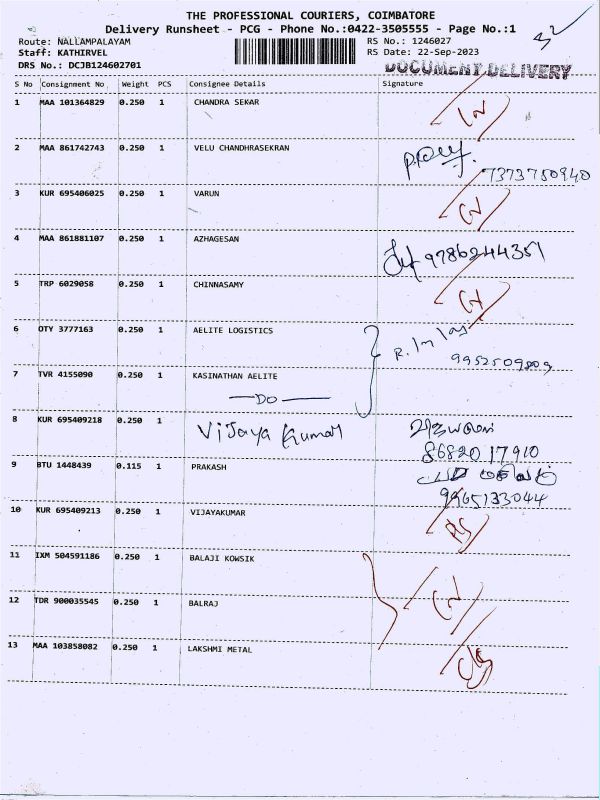 THE PROFESSIONAL COURIERS, COIMBATORE
Delivery Runsheet - PCG - Phone No.:0422-3505555 - Page No.:1
32
Route: NALLAMPALAYAM RS No.: 1246027
Staff: KATHIRVEL RS Date: 22-Sep-2023
DRS No.: DCJB124602701 DOCUMENT DELIVERY
S No Consignment No Weight PCS Consignee Details Signature
1 MAA 101364829 0.250 1 CHANDRA SEKAR
2 MAA 861742743 0.250 1 VELU CHANDHRASEKRAN
7373750940
3 KUR 695406025 0.250 1 VARUN
4 MAA 861881107 0.250 1 AZHAGESAN
9786244351
5 TRP 6029058 0.250 1 CHINNASAMY
6 OTY 3777163 0.250 1 AELITE LOGISTICS
9952509809
7 TVR 4155090 0.250 1 KASINATHAN AELITE
—DO—
8 KUR 695409218 0.250 1 Vijaya Kumar
8682017910
9 BTU 1448439 0.115 1 PRAKASH
9965133044
10 KUR 695409213 0.250 1 VIJAYAKUMAR
11 IXM 504591186 0.250 1 BALAJI KOWSIK
12 TDR 900035545 0.250 1 BALRAJ
13 MAA 103858082 0.250 1 LAKSHMI METAL